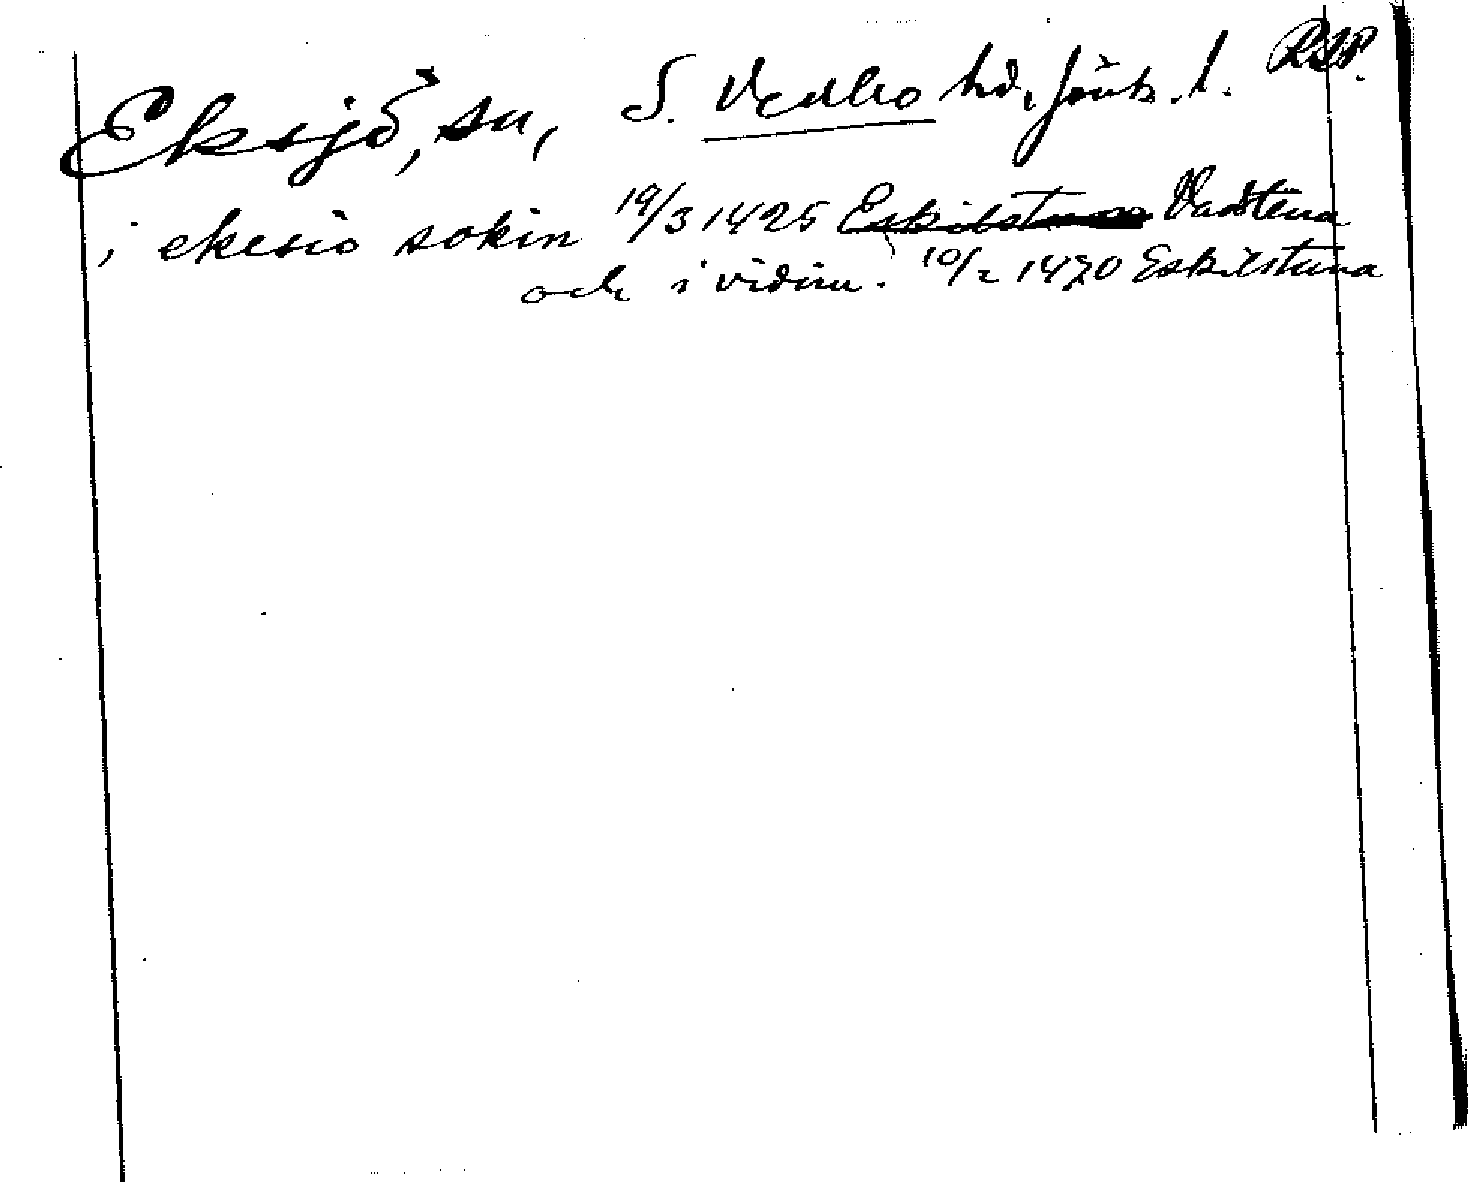 Eksjö, sn, S. Vedbo hd. Jönk. l. RAP.
i ekesio sokin 19/3 1425 Eskilstuna Vadstena
och i vidim. 10/2 1470 Eskilstuna